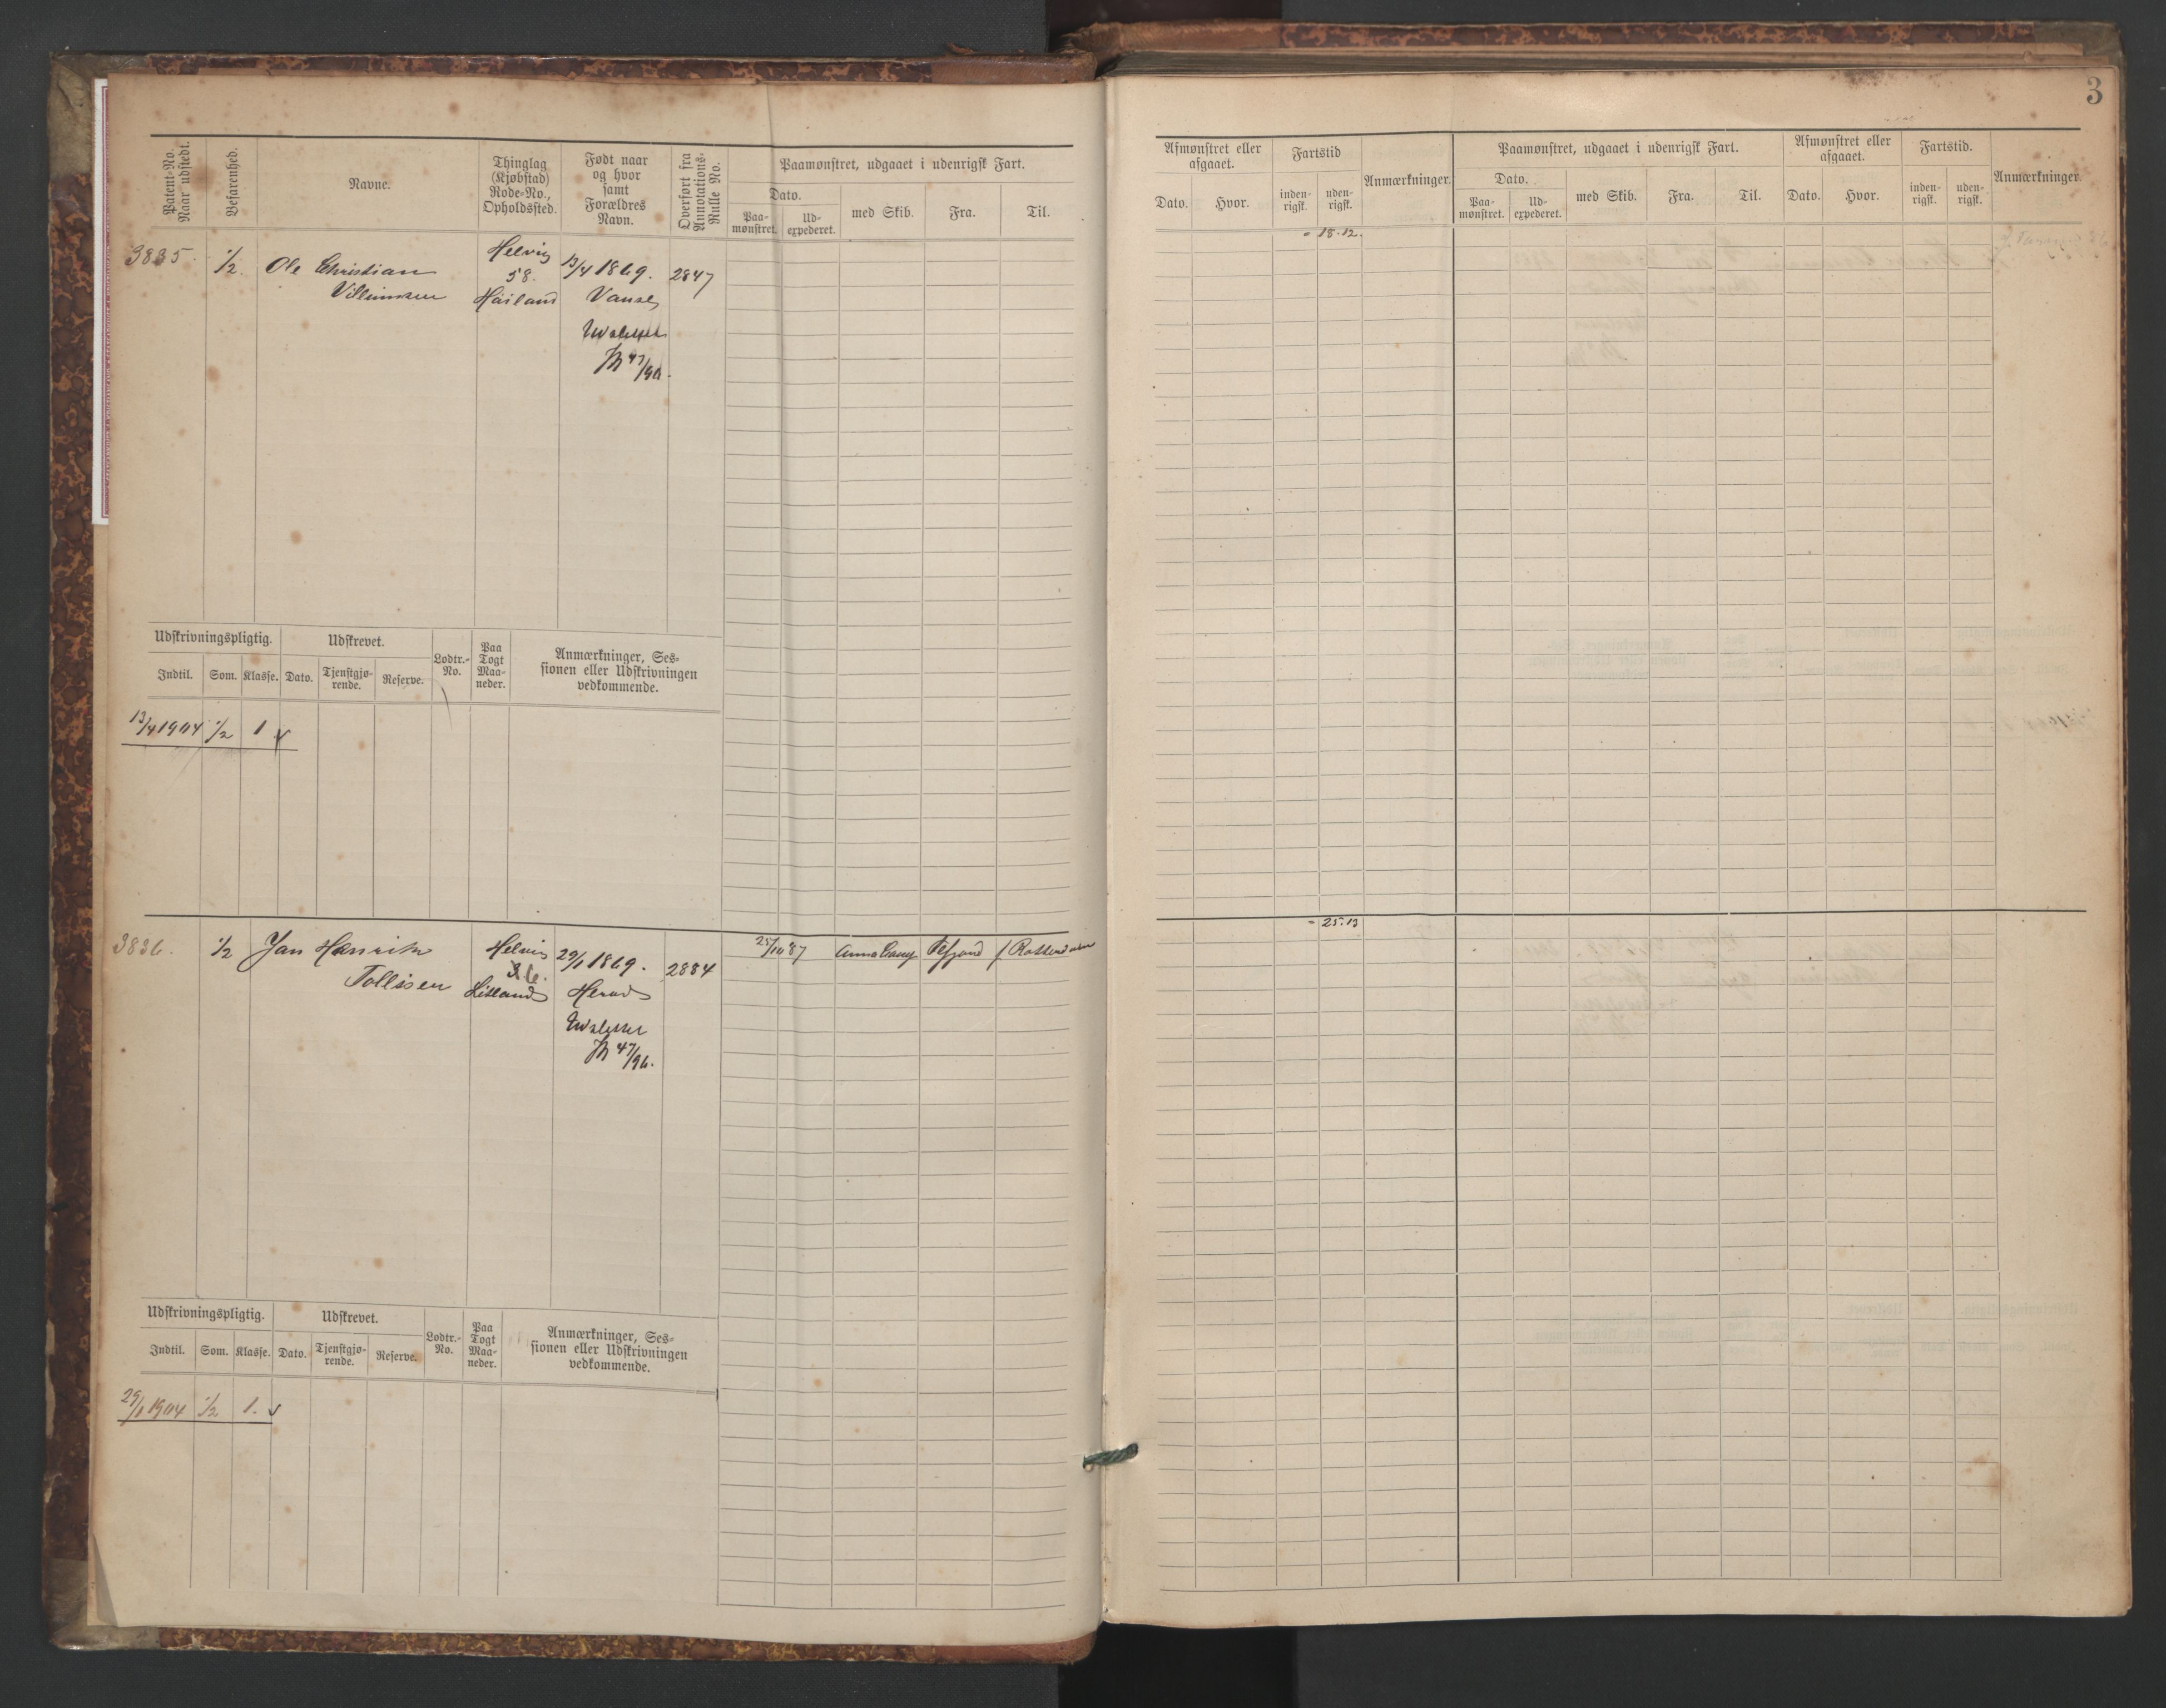 3
Patent-No. Naar udstedt.
Befarenhed.
Navne.
Thinglag (Kjøbstad) Rode-No., Opholdssted.
Født naar og hvor samt Forældres Navn.
Overført fra Annotations-Rulle No.
Paamønstret, udgaaet i udenrigsk Fart.
Dato.
Paa-mønstret.
Ud-expederet.
med Skib.
Fra.
Til.
Afmønstret eller afgaaet.
Dato.
Hvor.
Fartstid
inden-rigsk.
uden-rigsk.
Anmærkninger.
Paamønstret, udgaaet i udenrigsk Fart.
Dato.
Paa-mønstret.
Ud-expederet.
med Skib.
Fra.
Til.
Afmønstret eller afgaaet.
Dato.
Hvor.
Fartstid.
inden-rigsk.
uden-rigsk.
Anmærkninger.
3835.
1/2.
Ole Christian
Villumsen
Helvig
58.
13/4 1869.
Vanse
2847
47/96.
= 18.12.
Udskrivningspligtig.
Udskrevet.
Lodtr.-No.
Paa Togt Maa-neder.
Anmærkninger, Ses-
sionen eller Udskrivningen
vedkommende.
Indtil.
Som.
Klasse.
Dato.
Tjenstgjø-rende.
Reserve.
13/4 1904 1/2 1
3836.
1/2
Jan Henrik
Tollisen
Helvig
36.
29/1 1869.
Herad
2884
47/96.
25/10 87
f Rotterdam
= 25.13
Udskrivningspligtig.
Udskrevet.
Lodtr.-No.
Paa Togt Maa-neder.
Anmærkninger, Ses-
sionen eller Udskrivningen
vedkommende.
Indtil.
Som.
Klasse.
Dato.
Tjenstgjø-rende.
Reserve.
29/1 1904 1/2 1.